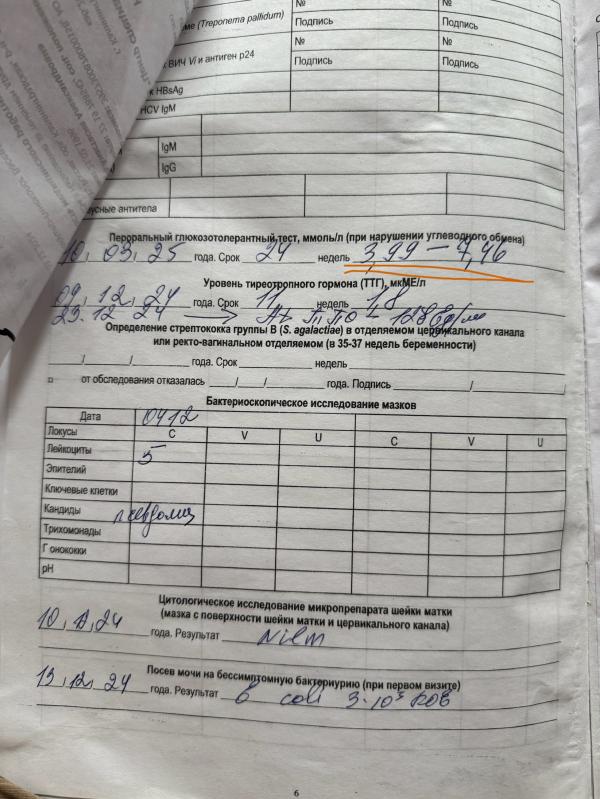 № №
ме (Treponema pallidum) Подпись Подпись
№ №
ВИЧ и антиген p24 Подпись Подпись
к HBsAg
HCV IgM
IgM
IgG
усные антитела
Пероральный глюкозотолерантный тест, ммоль/л (при нарушении углеводного обмена)
10, 03, 25 года. Срок 24 недель 3,99 — 7,46
Уровень тиреотропного гормона (ТТГ), мкМЕ/л
09, 12, 24 года. Срок 11 недель 1,8
23.12 24 → Ат ТПО - 128
Определение стрептококка группы B (S. agalactiae) в отделяемом цервикального канала
или ректо-вагинальном отделяемом (в 35-37 недель беременности)
года. Срок недель
от обследования отказалась года. Подпись
Бактериоскопическое исследование мазков
Дата 0412
Локусы C V U C V U
Лейкоциты 5
Эпителий
Ключевые клетки
Кандиды псевдомиц
Трихомонады
Гонококки
pH
Цитологическое исследование микропрепарата шейки матки
(мазка с поверхности шейки матки и цервикального канала)
24 года. Результат Nilm
Посев мочи на бессимптомную бактериурию (при первом визите)
13, 12, 24 года. Результат coli
6